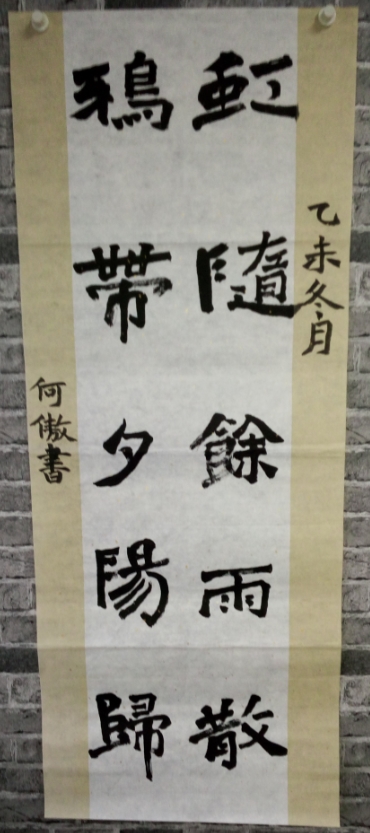 乙未冬月
虹隨餘雨散
鴉帶夕陽歸
何傲書